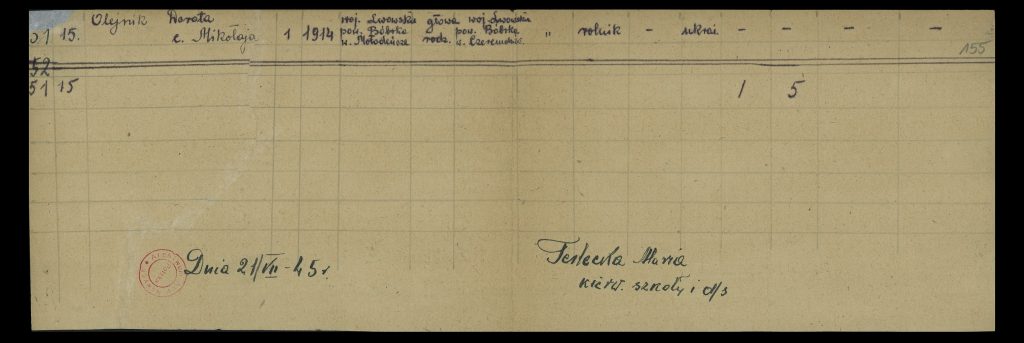 Olejnik Dorota woj. Lwowskie głowa woj. Lwowskie
51 15. c. Mikołaja 1 1914 pow. Bóbrka rodz. pow. Bóbrka „ rolnik – ukrai – – – – –
w. w.
155
52
51 15 1 5
Dnia 21/VII - 45 r.
Maria
kier. szkoły i